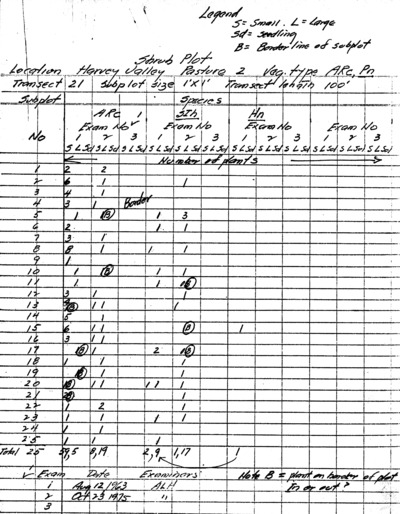 Legend
S = Small. L = Large
Sd = Seedling
B = Borderline of subplot
Shrub Plot
Location Harvey Valley Pasture 2 Veg. type ARc, Pn
Transect 21 Subplot size 1'x1' Transect length 100'
Subplot Species
ARc Sih Hn
Exam No Exam No Exam No Exam No
No 1 2 3 1 2 3 1 2 3 1 2 3
S L Sd S L Sd S L Sd S L Sd S L Sd S L Sd S L Sd S L Sd S L Sd S L Sd S L Sd S L Sd
Number of plants
1 2 2
2 6 1 1
3 4 1
4 3 1 Border
5 1 B 1 3
6 2 1 1
7 3 1
8 8 1 1 1
9 1
10 1 B 1 1
11 1 1 B
12 3 1
13 B 1 1 1
14 5 1
15 6 1 1 B 1
16 3 1 1
17 B 1 2 1 B
18 1 1 1
19 B 1 1
20 1 1 1 1 1
21
22 1 2 1
23 1 1 1 1
24 1 1
25 1 1 1
Total 25 59,5 8,19 2,9 1,17 1
✓ Exam Date Examiners
1 Aug 12 1963 ALH
2 Oct 23 1975 "
3
Note B = plant on border of plot
In or out?